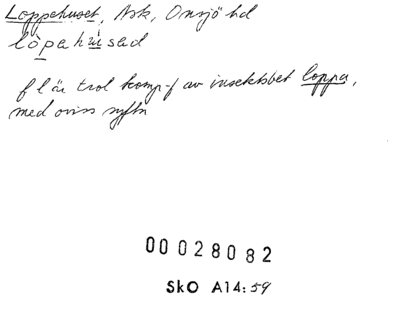 Loppehuset, Ask, Onsjö hd
lòpahúsad
f l är trol komp-f av insektsbet loppa,
med oviss syftn
00 028082
SkO A14:59